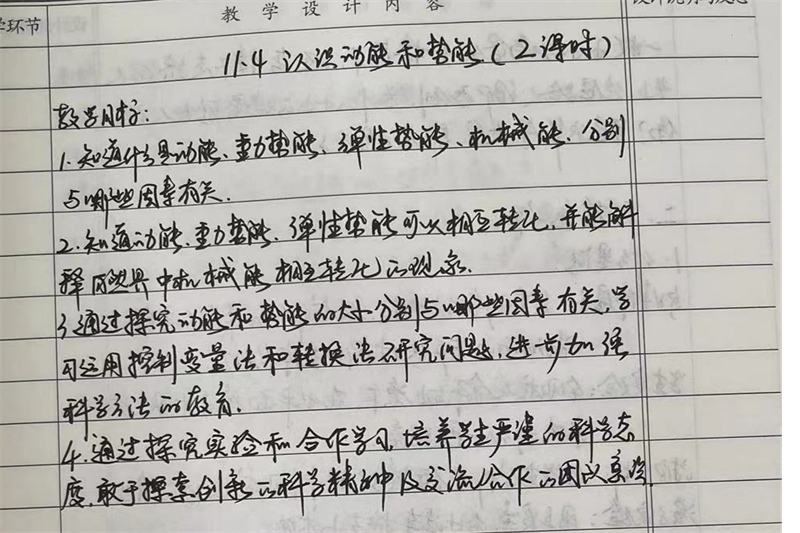 教学设计内容
学环节
11.4 认识动能和势能(2课时)
教学目标:
1.知道什么是动能、重力势能、弹性势能、机械能、分别
与哪些因素有关.
2.知道动能、重力势能、弹性势能可以相互转化,并能解
释自然界中机械能相互转化的现象.
3通过探究动能和势能的大小分别与哪些因素有关,学
习运用控制变量法和转换法研究问题,进一步加强
科学方法的教育.
4.通过探究实验和合作学习,培养学生严谨的科学态
度,敢于探索创新的科学精神及交流合作的团队